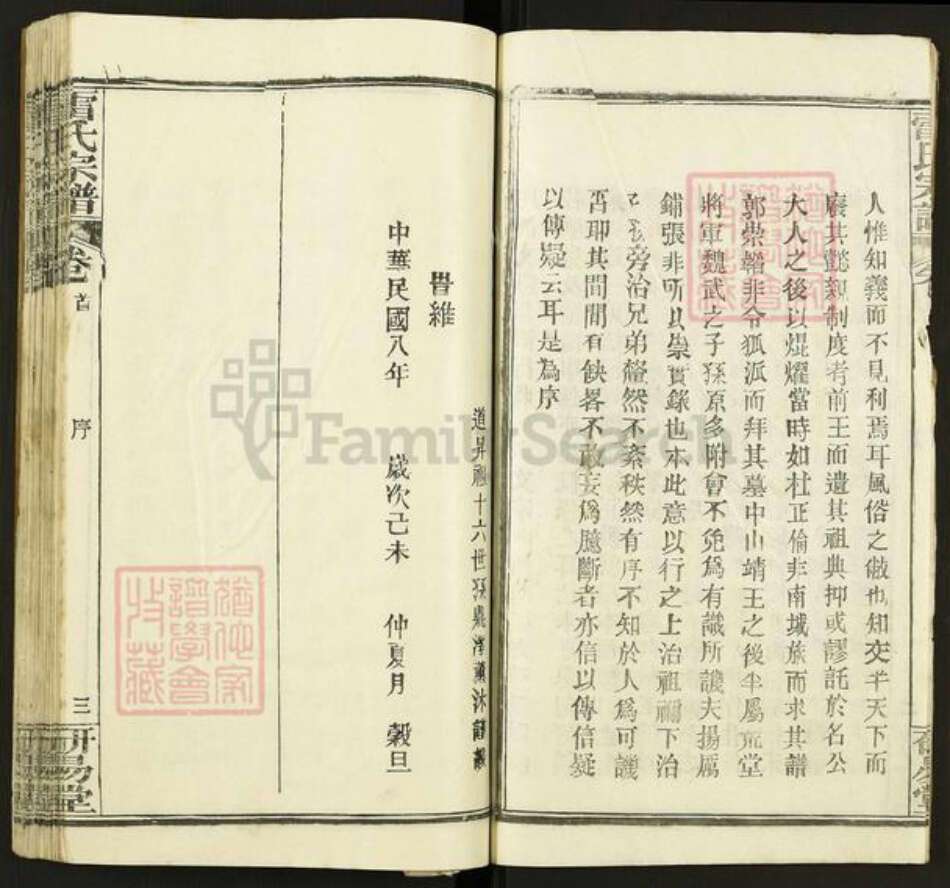 人惟知義而不見利焉耳風俗之敝也知交半天下而
其懿親制度考前王而遺其祖典抑或謬託於名公
大人之後以焜耀當時如杜正倫非南城族而求其譜
郭崇韜非令狐派而拜其墓中山靖王之後半屬荒堂
將軍魏武之子孫原多附會不免為有識所譏夫揚厲
鋪張非所以崇實錄也本此意以行之上治祖禰下治
子孫旁治兄弟釐然不紊秩然有序不知於人為可譏
否耶其間間有缺畧不敢妄為臆斷者亦信以傳信疑
以傳疑云耳是為序
道昇祖十六世孫 薰沐謹譔
旹維
中華民國八年 歲次己未 仲夏月 穀旦
雷氏宗譜 卷首 序 三 研易堂
FamilySearch